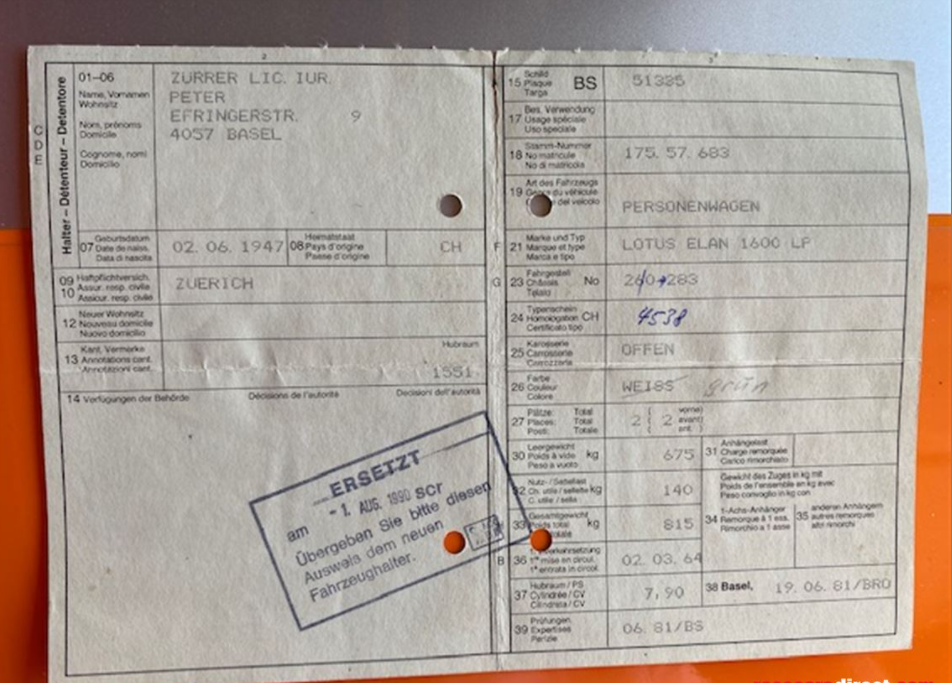 C
D
E
Halter – Détenteur – Detentore
01–06
Name, Vornamen
Wohnsitz
Nom, prénoms
Domicile
Cognome, nomi
Domicilio
ZURRER LIC. IUR.
PETER
EFRINGERSTR. 9
4057 BASEL
07 Geburtsdatum
Date de naiss.
Data di nascita
02. 06. 1947
08 Heimatstaat
Pays d'origine
Paese d'origine
CH
09 Haftpflichtversich.
10 Assur. resp. civile
Assicur. resp. civile
ZUERICH
12 Neuer Wohnsitz
Nouveau domicile
Nuovo domicilio
13 Kant. Vermerke
Annotations cant.
Annotazioni cant.
Hubraum
1551
14 Verfügungen der Behörde Décisions de l'autorité Decisioni dell'autorità
ERSETZT
am - 1. AUG. 1990 SCr
Übergeben Sie bitte diesen
Ausweis dem neuen
Fahrzeughalter.
15 Schild
Plaque
Targa
BS 51335
17 Bes. Verwendung
Usage spéciale
Uso speciale
18 Stamm-Nummer
No matricule
No di matricola
175. 57. 683
19 Art des Fahrzeugs
du véhicule
del veicolo
PERSONENWAGEN
F 21 Marke und Typ
Marque et type
Marca e tipo
LOTUS ELAN 1600 LP
G 23 Fahrgestell
Châssis No
Telaio
24 Typenschein
Homologation CH
Certificato tipo
4538
25 Karosserie
Carrosserie
Carrozzeria
OFFEN
26 Farbe
Couleur
Colore
WEISS grün
27 Plätze: Total vorne
Places: Total avant
Posti: Totale ant.
2 ( 2 )
30 Leergewicht
Poids à vide kg
Peso a vuoto
675
31 Anhängelast
Charge remorquée
Carico rimorchiato
32 Nutz- / Sattellast
Ch. utile / sellette kg
C. utile / sella
140
Gewicht des Zuges in kg mit
Poids de l'ensemble en kg avec
Peso convoglio in kg con
33 Gesamtgewicht
Poids total kg
totale
815
34 1-Achs-Anhänger
Remorque à 1 ess.
Rimorchio a 1 asse
35 anderen Anhängern
autres remorques
altri rimorchi
B 36 1. Inverkehrsetzung
1re mise en circul.
1a entrata in circol.
02. 03. 64
37 Hubraum / PS
Cylindrée / CV
Cilindrata / CV
7,90
38 Basel, 19. 06. 81/BRO
39 Prüfungen
Expertises
Perizie
06. 81/BS